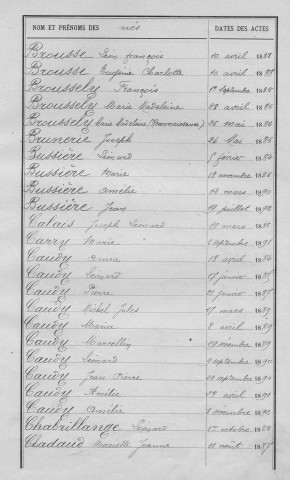 NOM ET PRÉNOMS DES nés DATES DES ACTES
Brousse Léon François 10 avril 1888
Brousse Eugénie Charlotte 10 avril 18
Broussely François 1er septembre 1886
Broussely Marie Madeleine 28 avril 1886
Broussely Marie Madeleine (Reconnaissance) 26 mai 1886
Brunerie Joseph 26 Mai 1886
Bussière Léonard 8 février 1884
Bussière Marie 12 novembre 1886
Bussière Amélie 14 mars 1890
Bussière Jean 14 juillet 1892
Calais Joseph Léonard 19 mars 188
Carry Marie septembre 1891
Caudy Anna 18 avril 1884
Caudy Léonard 17 janvier 188
Caudy Pierre 21 janvier 1887
Caudy Michel Jules 17 mars 1889
Caudy Maria 8 avril 1889
Caudy Marcellin 29 novembre 1889
Caudy Léonard 9 septembre 1890
Caudy Jean Pierre 21 septembre 1890
Caudy Amélie 28 avril 1891
Caudy Amélie 8 novembre 1892
Chabrillange Léonard 1er octobre 188
Chadaud Marcelle Jeanne 11 août 1887